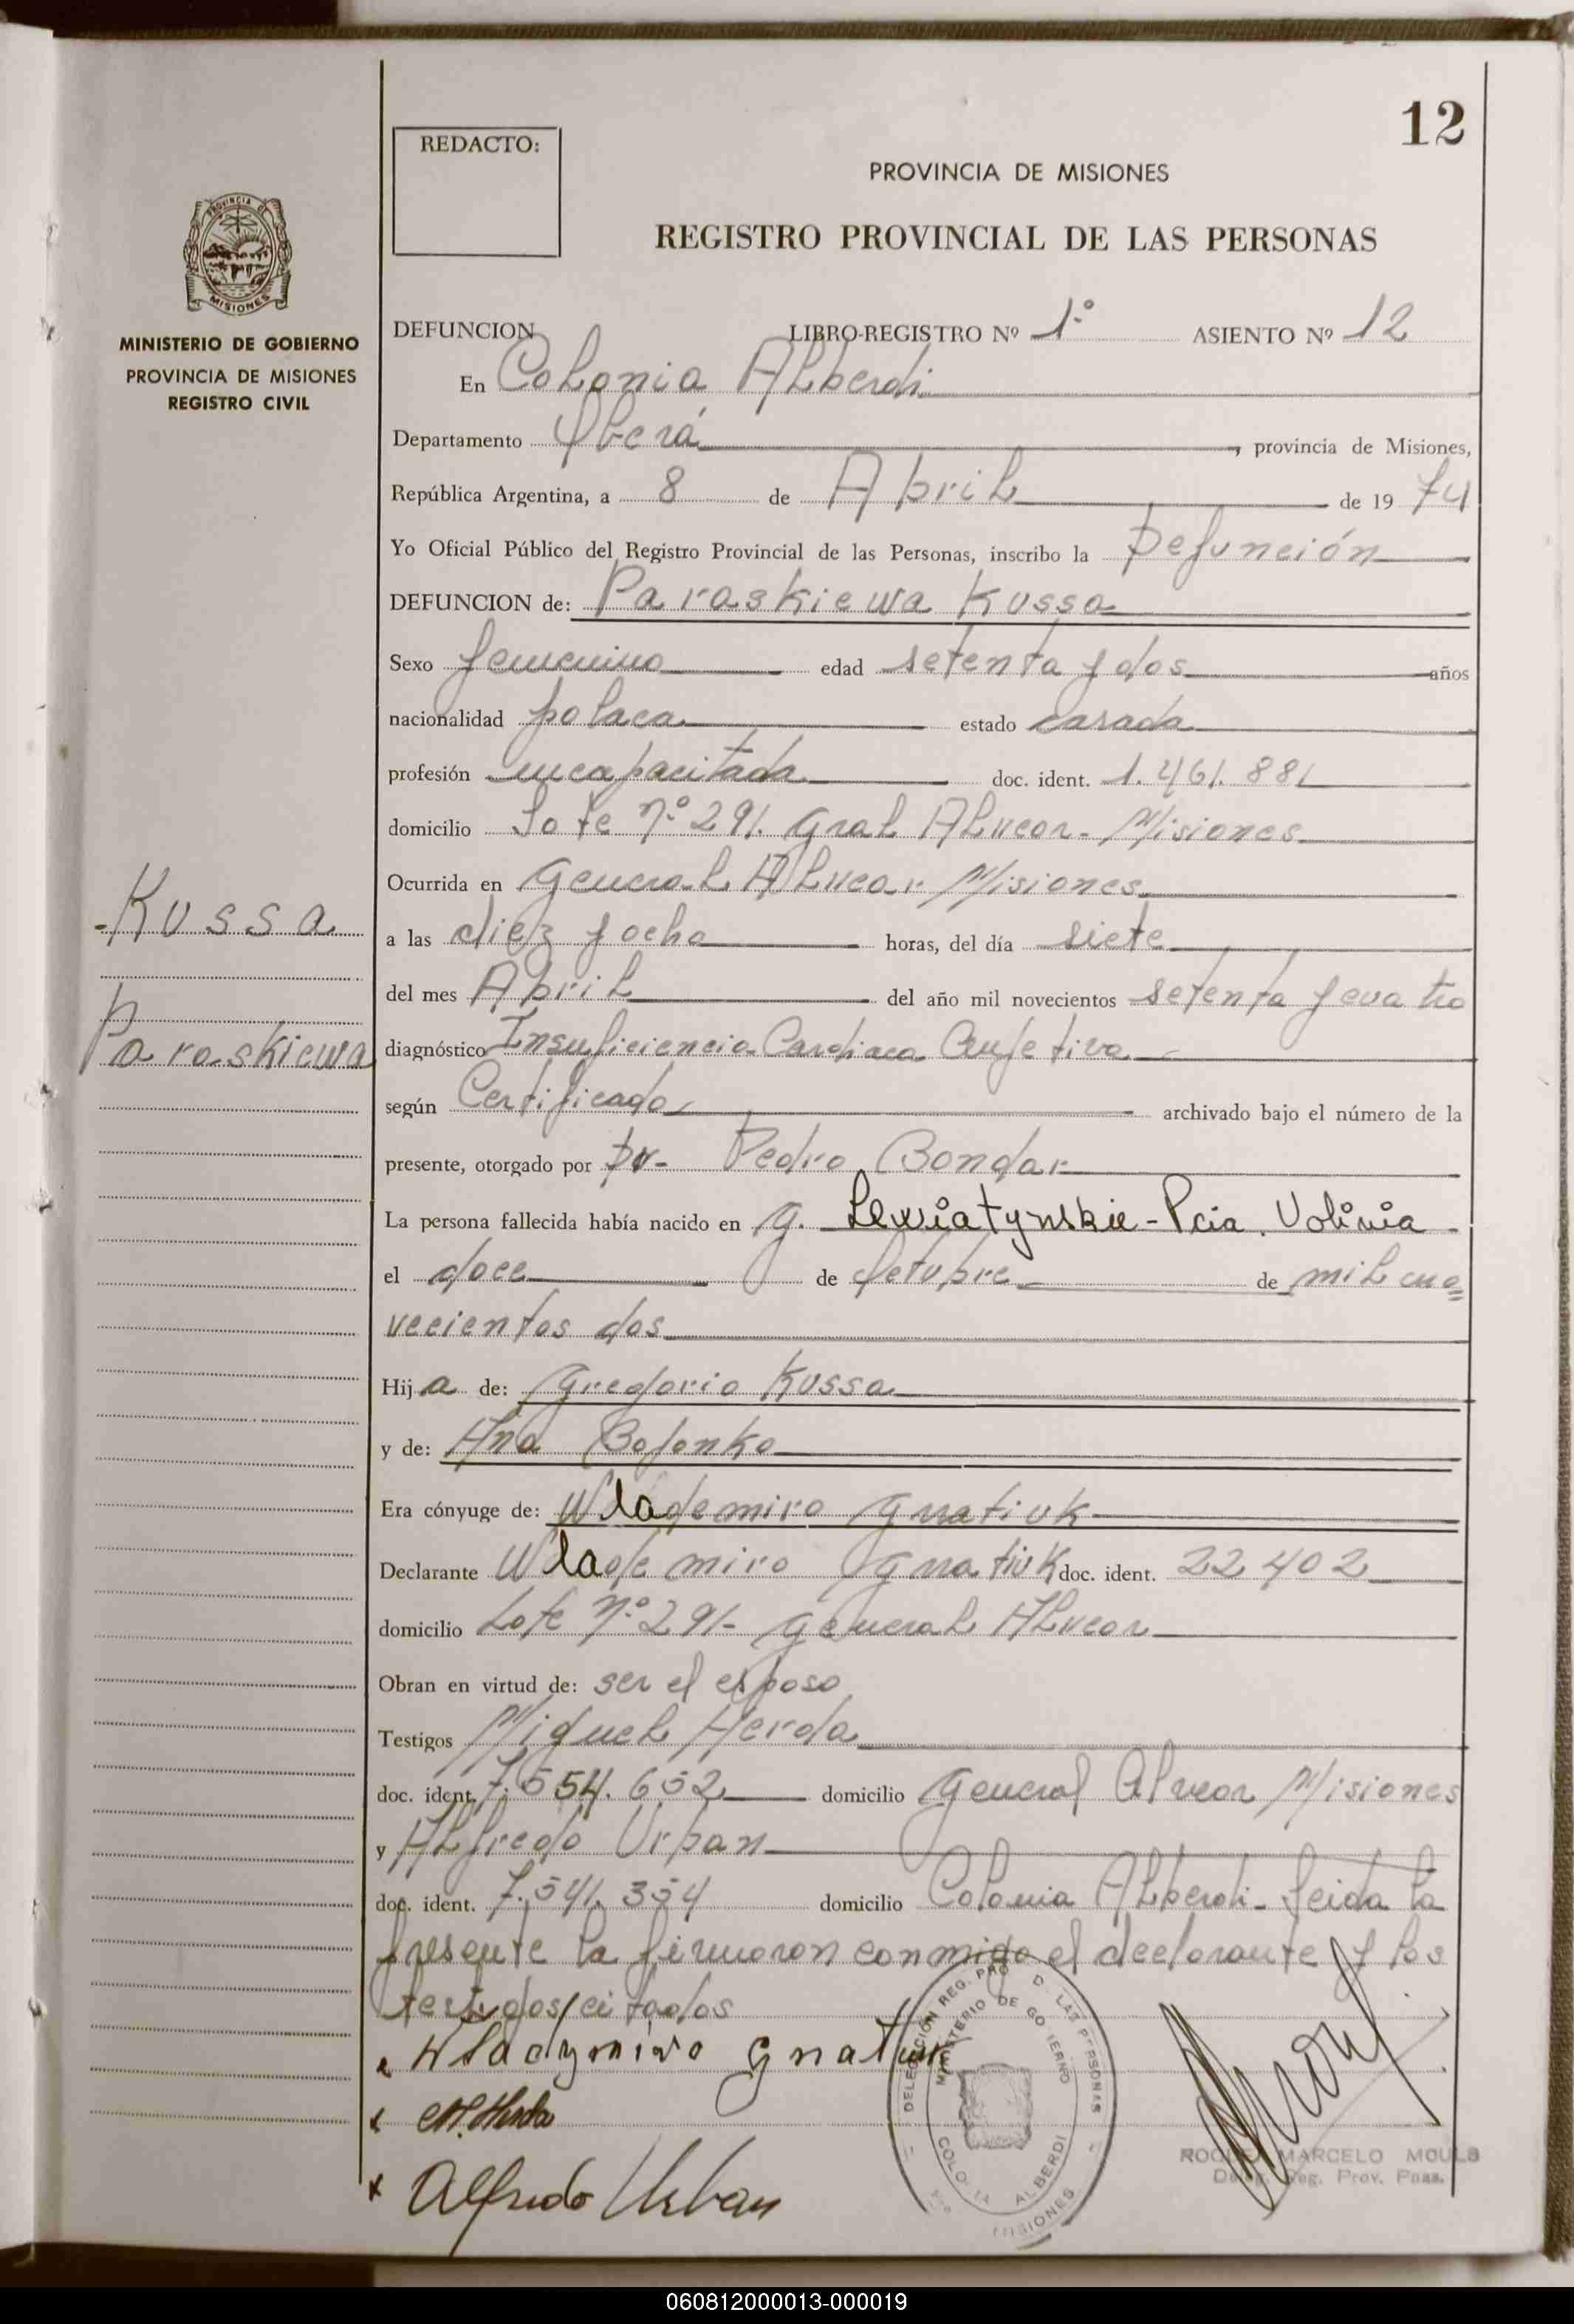 12
REDACTO:
PROVINCIA DE MISIONES
REGISTRO PROVINCIAL DE LAS PERSONAS
PROVINCIA DE
MISIONES
MINISTERIO DE GOBIERNO
PROVINCIA DE MISIONES
REGISTRO CIVIL
DEFUNCION LIBRO-REGISTRO Nº 1º ASIENTO Nº 12
En Colonia Alberdi
Departamento Oberá, provincia de Misiones,
República Argentina, a 8 de Abril de 19 74
Yo Oficial Público del Registro Provincial de las Personas, inscribo la Defunción
DEFUNCION de: Paraskiewa Kussa
Sexo femenino edad setenta y dos años
nacionalidad polaca estado casada
profesión incapacitada doc. ident. 1.461.881
domicilio Lote nº 291. Gral Alvear - Misiones
Ocurrida en General Alvear Misiones
- Kussa
a las diez y ocho horas, del día siete
del mes Abril del año mil novecientos setenta y cuatro
Paraskiewa
diagnóstico Insuficiencia Cardiaca
según Certificado archivado bajo el número de la
presente, otorgado por Dr- Pedro Bondar
La persona fallecida había nacido en G. - Pcia. Volinia
el doce de Octubre de mil no=
vecientos dos
Hij a de: Gregorio Kussa
y de: Ana
Era cónyuge de: Wlademiro Gnatiuk
Declarante Wlademiro Gnatiuk doc. ident. 22.402
domicilio Lote nº 291- General Alvear
Obran en virtud de: ser el esposo
Testigos Miguel Herda
doc. ident. 7.554.652 domicilio General Alvear Misiones
y Alfredo Urban
doc. ident. 7.541.354 domicilio Colonia Alberdi - leida la
presente la firmaron conmigo el declarante y los
testigos citados
Wladymiro Gnatiuk
M. Herda
x Alfredo Urban
DELEGACIÓN REG. PRO D. LAS PERSONAS
MINISTERIO DE GOBIERNO
COLONIA ALBERDI
MISIONES
ROQUE MARCELO
Deleg. Reg. Prov. Pnas.
060812000013-000019